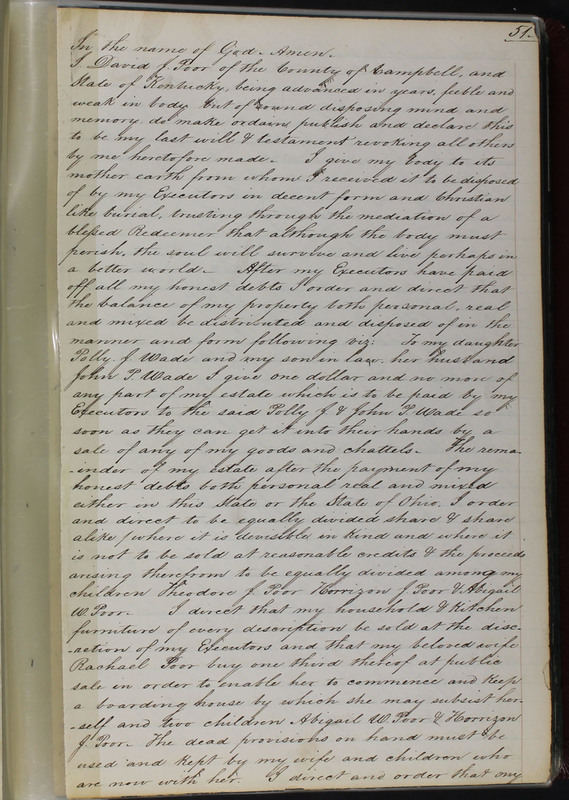 51.
In the name of God. Amen.
I. David J. Poor of the County of Campbell, and
State of Kentucky, being advanced in years, feeble and
weak in body but of sound disposing mind and
memory, do make ordain, publish and declare this
to be my last will & testament revoking all others
by me heretofore made. I give my body to its
mother earth from whom I received it to be disposed
of by my Executors in decent form and Christian
like burial, trusting through the mediation of a
blessed Redeemer that although the body must
perish, the soul will survive and live perhaps in
a better world. After my Executors have paid
off all my honest debts I order and direct that
the balance of my property both personal, real
and mixed be distributed and disposed of in the
manner and form following viz: To my daughter
Polly. J. Wade and my son in law, her husband
John P. Wade I give one dollar and no more of
any part of my estate which is to be paid by my
Executors to the said Polly J. & John P. Wade so
soon as they can get it into their hands by a
sale of any of my goods and chattels. The rema-
-inder of my estate after the payment of my
honest debts both personal real and mixed
either in this State or the State of Ohio, I order
and direct to be equally divided share & share
alike (where it is devisible in kind and where it
is not to be sold at reasonable credits & the proceeds
arising therefrom to be equally divided among my
children Theodore J. Poor Horrizon J. Poor & Abigail
W. Poor. I direct that my household & Kitchen
furniture of every description be sold at the disc-
-retion of my Executors and that my beloved wife
Rachael Poor buy one third thereof at public
sale in order to enable her to commence and keep
a boarding house by which she may subsist her-
-self and two children Abigail W. Poor & Horrizon
J. Poor. The dead provisions on hand must be
used and kept by my wife and children who
are now with her. I direct and order that my